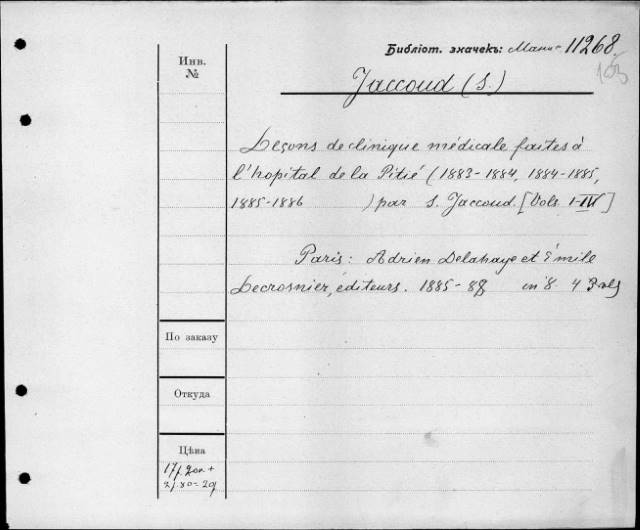 Библіот. значекъ: Мани- 11268
Инв.
№
Jaccoud (S.)
Leçons de clinique médicale faites à
l'hopital de la Pitié (1883-1884, 1884-1885,
1885-1886 ) par S. Jaccoud. [Vols I-IV]
Paris: Adrien Delahaye et Émile
Lecrosnier, éditeurs. 1885-88 in 8.
По заказу
Откуда
Цѣна